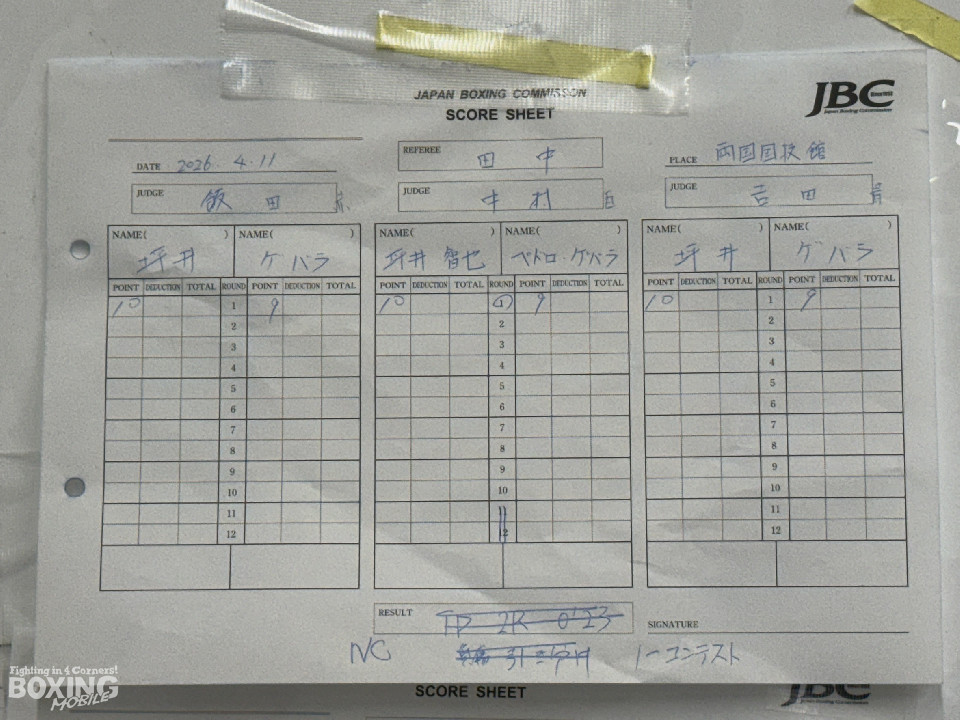 JAPAN BOXING COMMISSON
SCORE SHEET
JBC
Japan Boxing Commission
DATE 2026. 4. 11
REFEREE 田中
PLACE 両国国技館
JUDGE 飯田
JUDGE 中村
JUDGE 吉田
NAME( ) 坪井 NAME( ) ゲバラ
NAME( ) 坪井 智也 NAME( ) ペドロ・ゲバラ
NAME( ) 坪井 NAME( ) ゲバラ
POINT DEDUCTION TOTAL ROUND POINT DEDUCTION TOTAL
10 1 9
2
3
4
5
6
7
8
9
10
11
12
POINT DEDUCTION TOTAL ROUND POINT DEDUCTION TOTAL
10 1 9
2
3
4
5
6
7
8
9
10
11
12
POINT DEDUCTION TOTAL ROUND POINT DEDUCTION TOTAL
10 1 9
2
3
4
5
6
7
8
9
10
11
12
RESULT 2R 0'23
SIGNATURE
NC
ノーコンテスト
Fighting in 4 Corners!
BOXING
MOBILE
SCORE SHEET
JBC